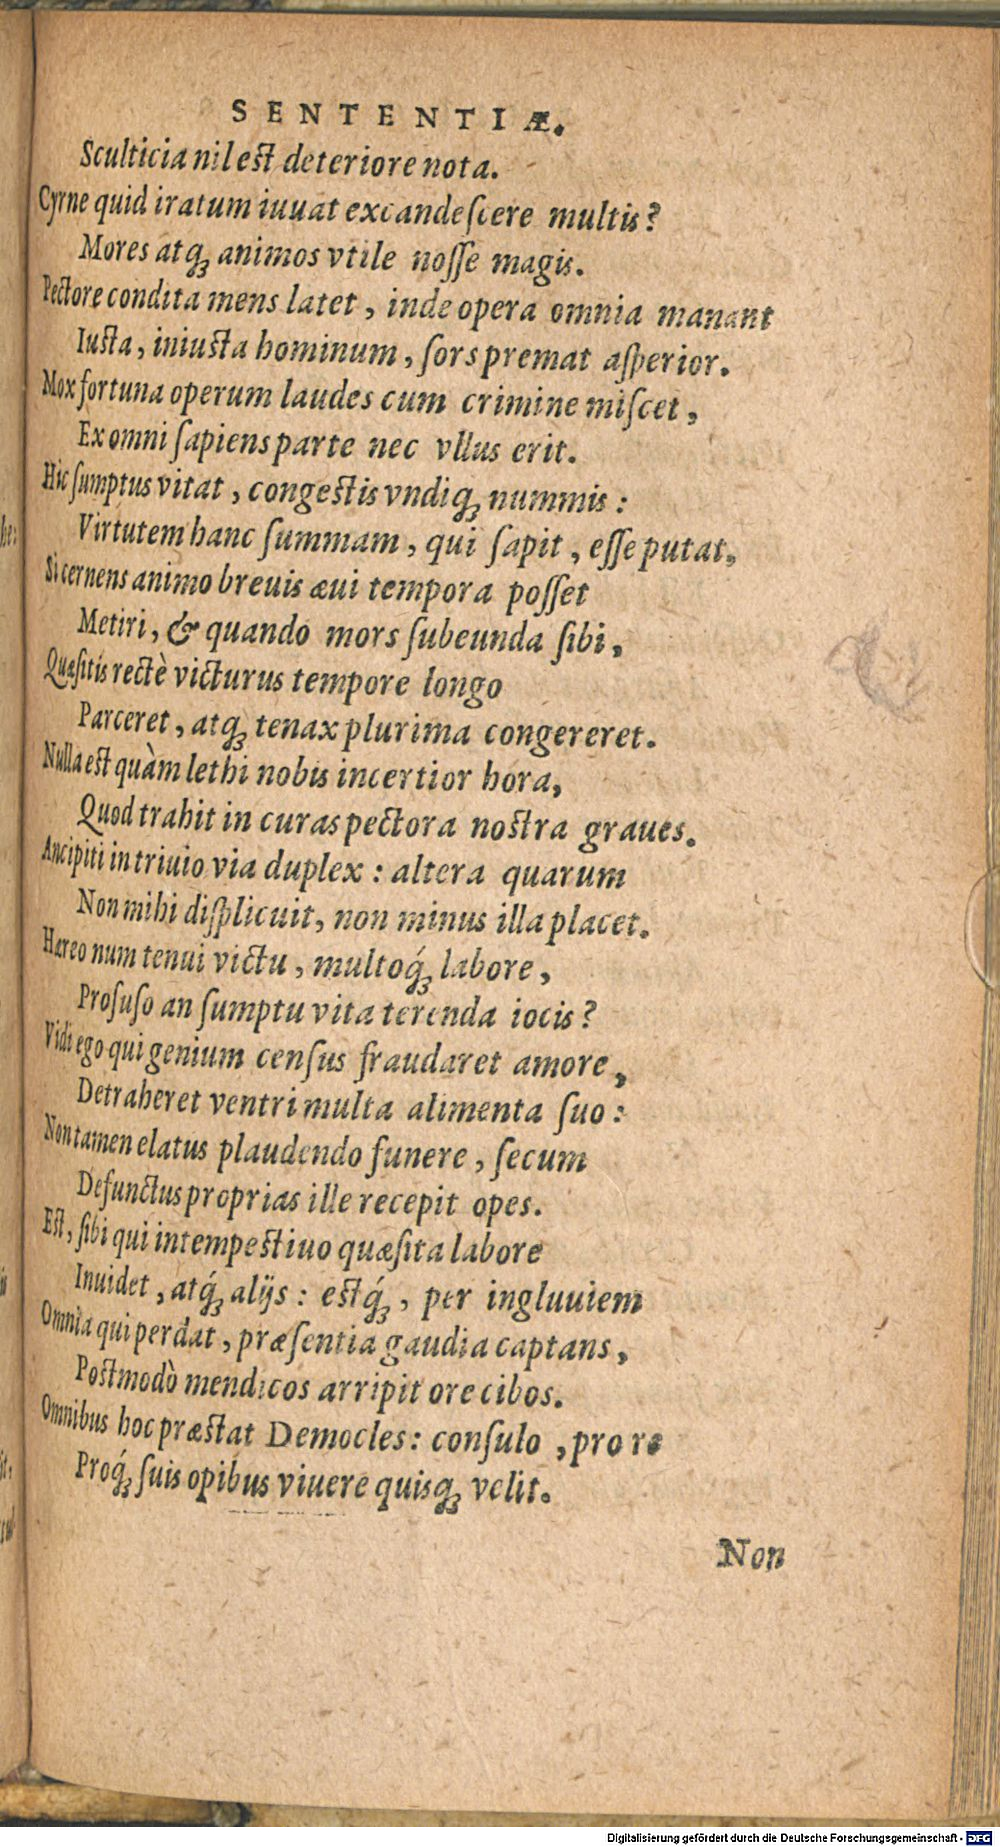 SENTENTIÆ.
Sculticia nil est deteriore nota.
Cyrne quid iratum iuuat excandeſcere multis?
Mores atqꝫ animos vtile noſſe magis.
Pectore condita mens latet, inde opera omnia manant
Iusta, iniusta hominum, ſors premat aſperior.
Mox fortuna operum laudes cum crimine miſcet,
Ex omni ſapiens parte nec vllus erit.
Hic ſumptus vitat, congestis vndiqꝫ nummis:
Virtutem hanc ſummam, qui ſapit, eſſe putat,
Si cernens animo breuis æui tempora poſſet
Metiri, & quando mors ſubeunda ſibi,
Quæſitis rectè victurus tempore longo
Parceret, atqꝫ tenax plurima congereret.
Nulla est quàm lethi nobis incertior hora,
Quod trahit in curas pectora nostra graues.
Ancipiti in triuio via duplex: altera quarum
Non mihi diſplicuit, non minus illa placet.
Hæreo num tenui victu, multoq́ꝫ labore,
Profuſo an ſumptu vita terenda iocis?
Vidi ego qui genium cenſus fraudaret amore,
Detraheret ventri multa alimenta ſuo:
Non tamen elatus plaudendo funere, ſecum
Defunctus proprias ille recepit opes.
Est, ſibi qui intempestiuo quæſita labore
Inuidet, atq́ꝫ alijs: estq́ꝫ, per ingluuiem
Omnia qui perdat, præſentia gaudia captans,
Postmodò mendicos arripit ore cibos.
Omnibus hoc præstat Democles: conſulo, pro re
Proq́ꝫ ſuis opibus viuere quisqꝫ velit.
Non
Digitalisierung gefördert durch die Deutsche Forschungsgemeinschaft - DFG